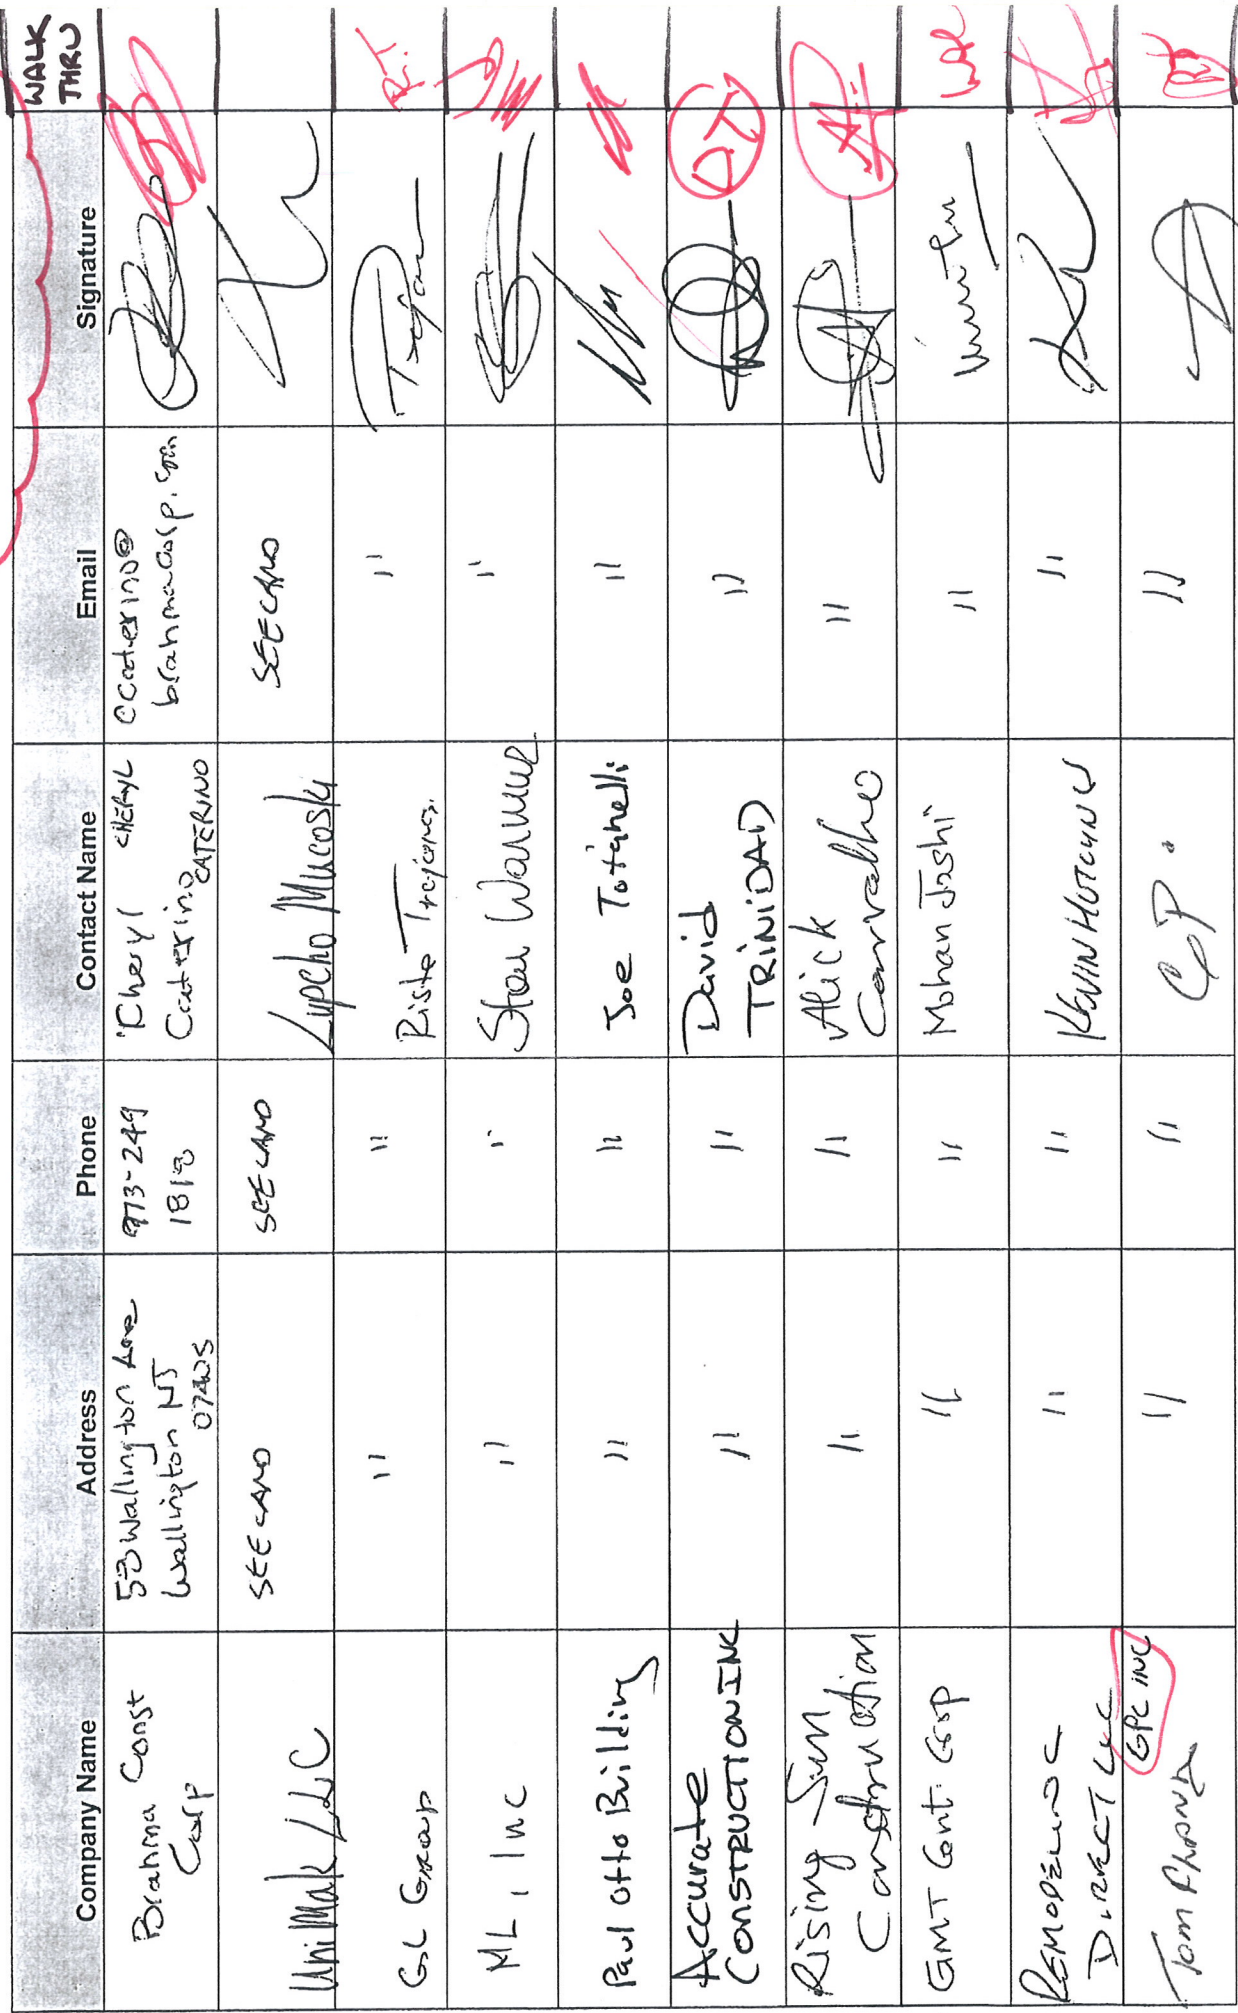 Company Name Address Phone Contact Name Email Signature WALK THRU
Brahma Const
Corp
53 Wallington Ave
Wallington NJ
973-249
1818
Cheryl CHERYL
Caterino CATERINO
ccaterino@
brahmacorp.com
UniMak LLC
SEE CARD
SEE CARD
Lupcho Mucoski
SEE CARD
GL Group
"
"
Riste Trajanos.
"
R.T
ML, Inc
"
"
"
Paul Otto Building
"
"
Joe Totanelli
"
Accurate
CONSTRUCTION INC
"
"
David
TRINIDAD
"
DT
Rising Sun
Construction
"
"
Alick
Carvalho
"
GMT Cont. Corp
"
"
Mohan Joshi
"
REMODELING
DIRECT LLC
"
"
"
GPC INC
Tom
"
"
"